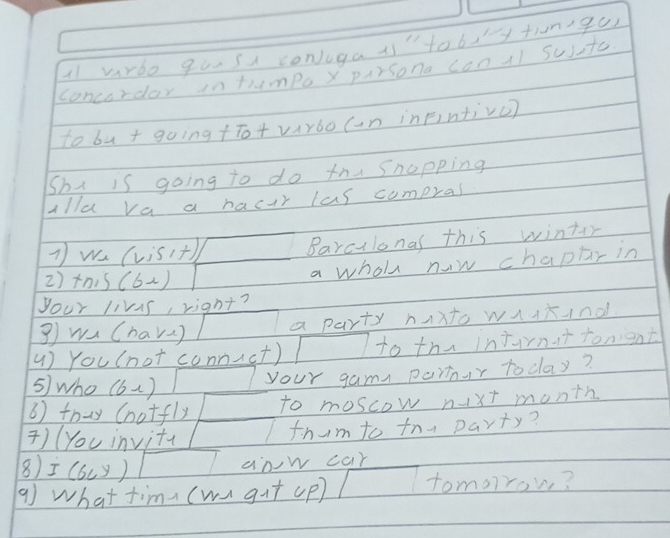 el verbo que se conjuga es "to be" y tiene que
concordar en tiempo y persona con el sujeto
to be + going + to + verbo (en infintivo)
She is going to do the shopping
ella va a hacer las compras
1) We (visit) Barcelonas this winter
2) this (be) a whole new chapter in
your lives, right?
3) We (have) a party nexto weekend
4) You (not connect) to the internet tonight
5) Who (be) your game partner today?
6) they (not fly to moscow next month
7) (You invite them to the party?
8) I (buy) a new car
9) What time (we get up) tomorrow?